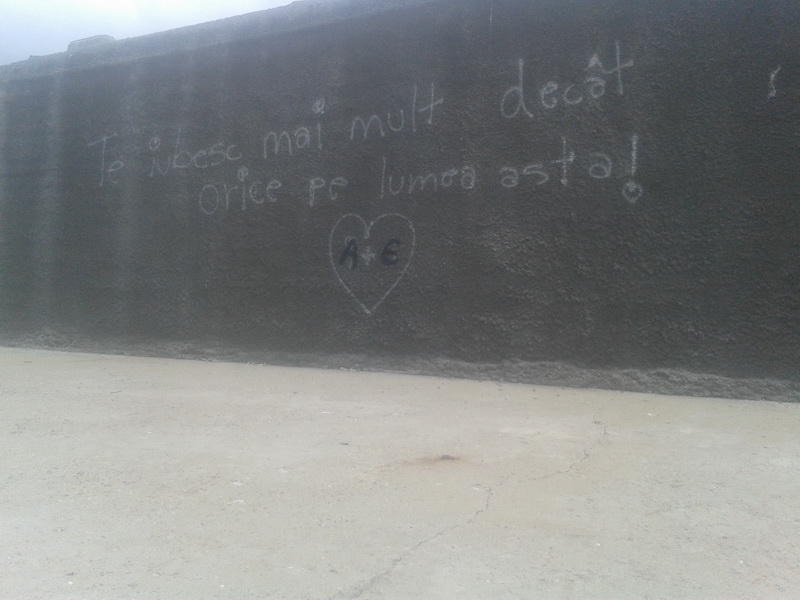 Te iubesc mai mult decât
orice pe lumea asta!
A + E